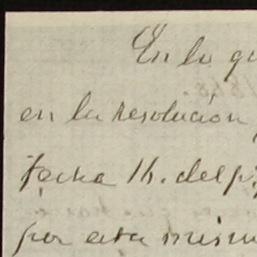 En lo qu
en la resolución
fecha 16. del p
por esta mism